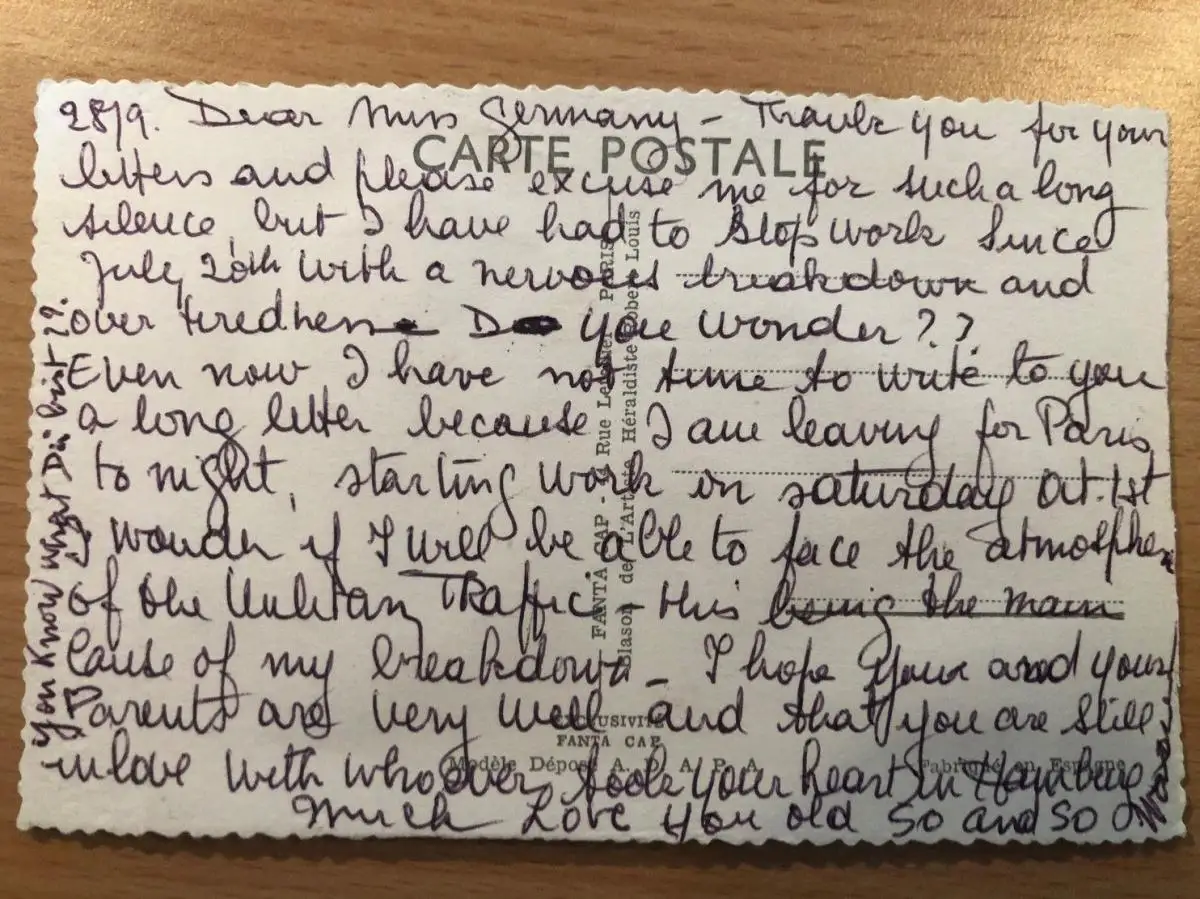 28/9. Dear Miss Germany - Thank you for your
letters and please excuse me for such a long
silence, but I have had to stop work since
July 20th with a nervous breakdown and
over tiredness Do you wonder??
Even now I have not time to write to you
a long letter because I am leaving for Paris
to night, starting work on saturday Oct. 1st
I wonder if I will be able to face the atmosphere
of the Traffic. - this being the main
cause of my breakdown - I hope you and your
Parents are very well and that you are still
in love with whoever took your heart in Hamburg
Much Love you old so and so
you know what Du bist 29.
CARTE POSTALE
FANTA CAP - Rue PARIS
Blason de L'Artiste Héraldiste Robert Louis
EXCLUSIVITÉ
FANTA CAP
Modèle Déposé A. D. A. P. A.
Fabriqué en Espagne